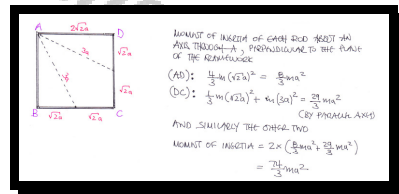 A 2√2a D
3a √2a
√2a
B √2a √2a C
MOMENT OF INERTIA OF EACH ROD ABOUT AN
AXIS THROUGH A, PERPENDICULAR TO THE PLANE
OF THE FRAMEWORK
(AD): 4/3 m(√2a)² = 8/3 ma²
(DC): 1/3 m(√2a)² + m(3a)² = 29/3 ma²
(BY PARALLEL AXIS)
AND SIMILARLY THE OTHER TWO
MOMENT OF INERTIA = 2×(8/3 ma² + 29/3 ma²)
= 74/3 ma²